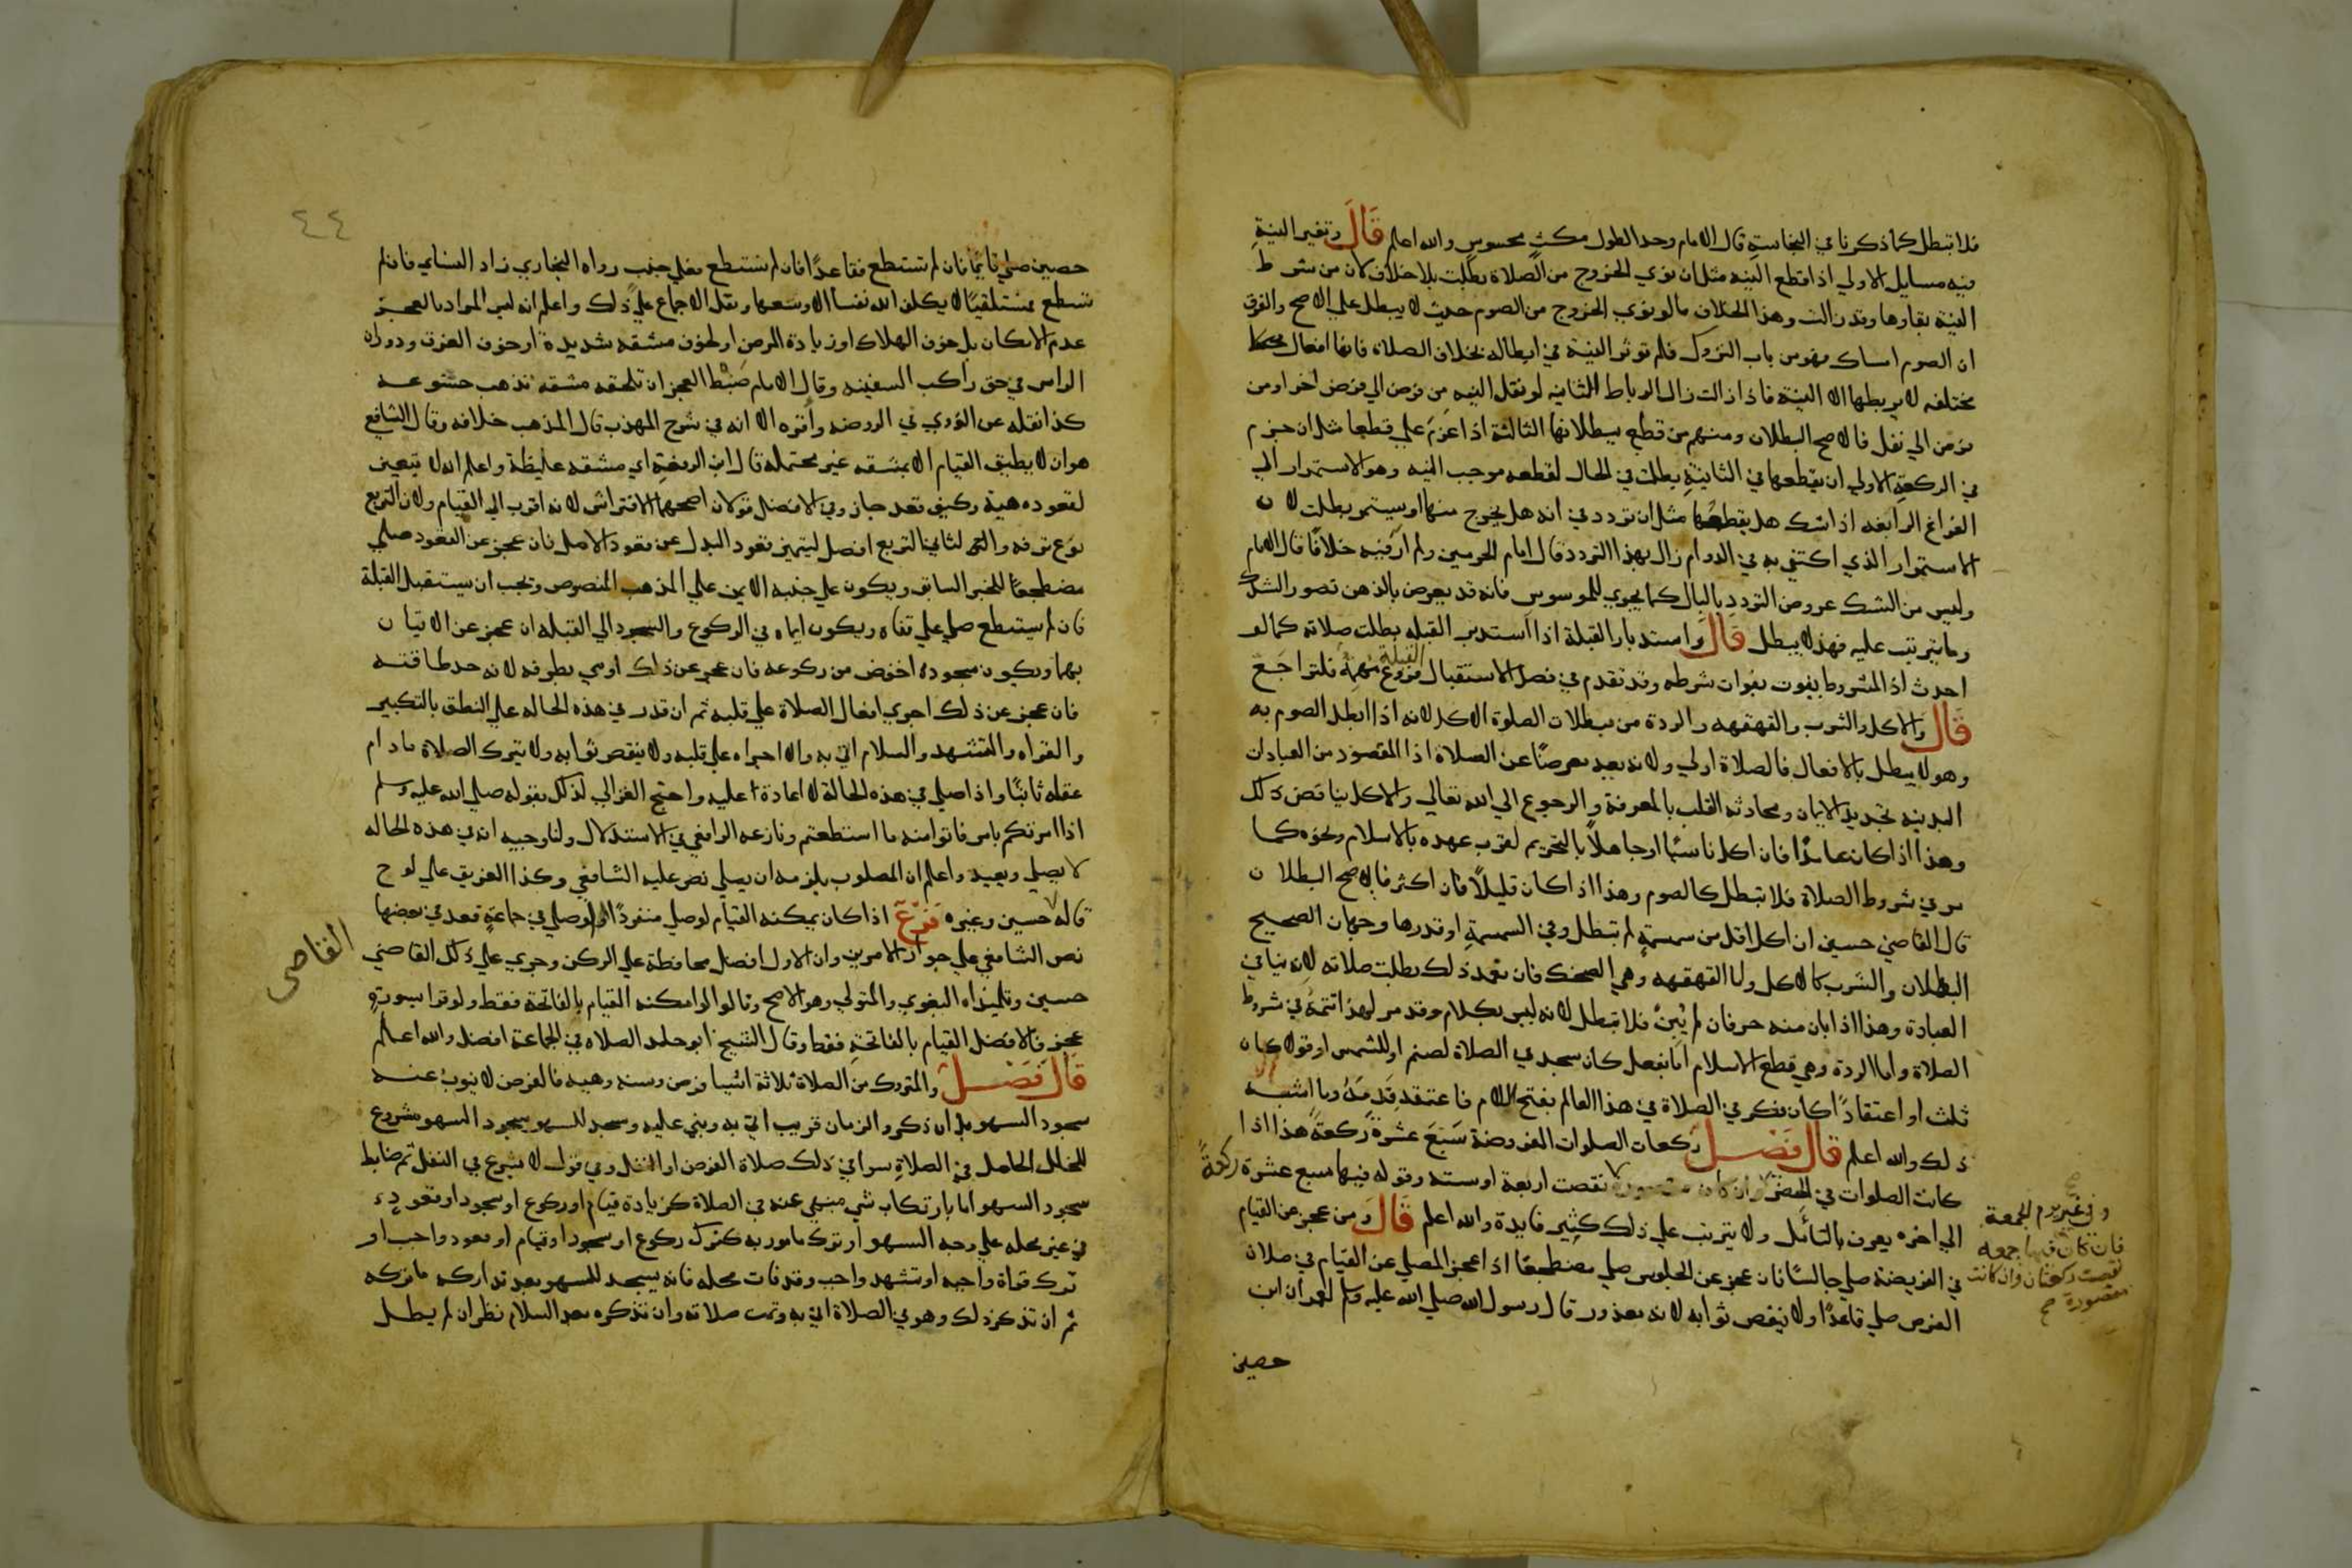 فلا تبطل كما ذكرنا في النجاسة قال الامام وحد الطول مكث محسوس والله اعلم قال وتغير النية
فيه مسايل الاولي اذا قطع النيه مثل ان نوي الخروج من الصلاة بطلت بلا خلاف لان من شرط
النية بقاوها وقد زالت وهذا بخلاف ما لو نوي الخروج من الصوم حيث لا يبطل علي الاصح والفرق
ان الصوم امساك فهو من باب التروك فلم توثر النية في ابطاله بخلاف الصلاة فانها افعال
مختلفه لا يربطها الا النية فاذا زالت زال الرباط الثانيه لو نقل النيه من فرض الي فرض اخر او من
فرض الي نفل فالاصح البطلان ومنهم من قطع ببطلانها الثالثة اذا عزم علي قطعها مثل ان جزم
في الركعة الاولي ان يقطعها في الثانية بطلت في الحال لقطعه موجب النيه وهو الاستمرار الي
الفراغ الرابعه اذا شك هل يقطعها مثل ان تردد في انه هل يخرج منها او يستمر بطلت لان
الاستمرار الذي اكتفي به في الدوام زال بهذا التردد قال امام الحرمين ولم ار فيه خلافا قال الامام
وليس من الشك عروض التردد بالبال كما يجري للموسوس فانه قد يعرض بالذهن تصور الشك
وما يترتب عليه فهذا لا يبطل قال واستدبار القبلة اذا استدبر القبله بطلت صلاته كما لو
احدث اذ المشروط يفوت بفوات شرطه وقد تقدم في فصل الاستقبال القبلة فروع مهمة فلتراجع
قال والاكل والشرب والقهقهه والردة من مبطلات الصلوة الاكل لانه اذا ابطل الصوم به
وهو لا يبطل بالافعال فالصلاة اولي ولانه يعد معرضا عن الصلاة اذا المقصود من العبادات
البدنيه تجديد الايمان ومحادثه القلب بالمعرفة والرجوع الي الله تعالي والاكل يناقض ذلك
وهذا اذا كان عامدا فان اكل ناسيا او جاهلا بالتحريم لقرب عهده بالاسلام ونحوه كما
مر في شروط الصلاة فلا تبطل كالصوم وهذا اذا كان قليلا فان اكثر فالاصح البطلان
قال القاضي حسين ان اكل اقل من سمسمة لم تبطل وفي السمسمة او قدرها وجهان الصحيح
البطلان والشرب كالاكل واما القهقهه وهي الضحك فان تعمد ذلك بطلت صلاته لانه ينافي
العبادة وهذا اذا بان منه حرفان فان لم يبن فلا تبطل لانه ليس بكلام وقد مر لهذا تتمة في شروط
الصلاة واما الردة وهي قطع الاسلام اما بفعل كان سجد في الصلاة لصنم او للشمس او قول كان
ثلث او اعتقادا كان فكر في الصلاة في هذا العالم بفتح اللام فاعتقد قدمه وما اشبه
ذلك والله اعلم قال فصل ركعات الصلوات المفروضة سبع عشرة ركعة هذا اذا
كانت الصلوات في الحضر نقصت اربعة او ستة وقوله فيها سبع عشرة ركعة
الي اخره يعرف بالتامل ولا يترتب علي ذلك كثير فايدة والله اعلم قال ومن عجز عن القيام
في الفريضة صلي جالسا فان عجز عن الجلوس صلي مضطجعا اذا عجز المصلي عن القيام في صلاة
الفرض صلي قاعدا ولا ينقص ثوابه لانه معذور قال رسول الله صلي الله عليه وسلم لعمران ابن
حصين
وفي غير يوم الجمعة
فان كان فيها جمعه
نقصت ركعتان وان كانت
مقصورة صح
٤٤
حصين صلي قايما فان لم تستطع فقاعدا فان لم تستطع فعلي جنب رواه البخاري زاد النساي فان لم
تستطع فمستلقيا لا يكلف الله نفسا الا وسعها ونقل الاجماع علي ذلك واعلم انه ليس المراد بالعجز
عدم الامكان بل خوف الهلاك او زيادة المرض او لحوق مشقه شديدة او خوف الغرق ودوران
الراس في حق راكب السفينه وقال الامام ضبط العجز ان تلحقه مشقه تذهب خشوعه
كذا نقله عن النووي في الروضه واقره الا انه في شرح المهذب قال المذهب خلافه وقال الشافعي
هو ان لا يطيق القيام الا بمشقه غير محتمله قال ابن الرفعة اي مشقه غليظة واعلم انه لا يتعين
لقعوده هيئة وكيف قعد جاز وفي الافضل قولان اصحهما الافتراش لانه اقرب الي القيام ولان التربع
نوع ترفه والثاني التربع افضل ليتميز قعود البدل عن قعود الاصل فان عجز عن القعود صلي
مضطجعا للخبر السابق ويكون علي جنبه الايمن علي المذهب المنصوص ويجب ان يستقبل القبلة
فان لم يستطع صلي علي قفاه ويكون ايماه في الركوع والسجود الي القبله ان عجز عن الاتيان
بهما ويكون سجوده اخفض من ركوعه فان عجز عن ذلك اومي بطرفه لانه حد طاقته
فان عجز عن ذلك اجري افعال الصلاة علي قلبه ثم ان قدر في هذه الحاله علي النطق بالتكبير
والقراه والتشهد والسلام اتي به والا اجراه علي قلبه ولا ينقص ثوابه ولا يترك الصلاة مادام
عقله ثابتا واذا صلي في هذه الحالة لا اعادة عليه واحتج الغزالي لذلك بقوله صلي الله عليه وسلم
اذا امرتكم بامر فاتوا منه ما استطعتم ونازعه الرافعي في الاستدلال ولنا وجيه انه في هذه الحاله
لا يصلي ويعيد واعلم ان المصلوب يلزمه ان يصلي نص عليه الشافعي وكذا الغريق علي لوح
قاله حسين وغيره فرع اذا كان يمكنه القيام لو صلي منفردا ولو صلي في جماعة قعد في بعضها
نص الشافعي علي جواز الامرين وان الاول افضل محافظة علي الركن وجري علي ذلك القاضي
القاضى
حسين وتلميذاه البغوي والمتولي وهو الاصح وقالوا لو امكنه القيام بالفاتحة فقط ولو قرا سورة
عجز فالافضل القيام بالفاتحة فقط وقال الشيخ ابو حامد الصلاه في الجماعة افضل والله اعلم
قال فصل والمتروك من الصلاة ثلاثة اشيا فرض وسنه وهيه فالفرض لا ينوب عنه
سجود السهو بل ان ذكره والزمان قريب اتي به وبني عليه وسجد للسهو سجود السهو مشروع
للخلل الحاصل في الصلاة سوا في ذلك صلاة الفرض او النفل وفي قول لا يشرع في النفل ثم ضابط
سجود السهو اما بارتكاب شي منهي عنه في الصلاة كزيادة قيام او ركوع او سجود او قعود
في غير محله علي وجه السهو او ترك مامور به كترك ركوع او سجود او قيام او قعود واجب او
ترك قراة واجبه او تشهد واجب وقد فات محله فانه يسجد للسهو بعد تداركه ما تركه
ثم ان تذكر ذلك وهو في الصلاة اتي به وتمت صلاته وان تذكره بعد السلام نظر ان لم يطل